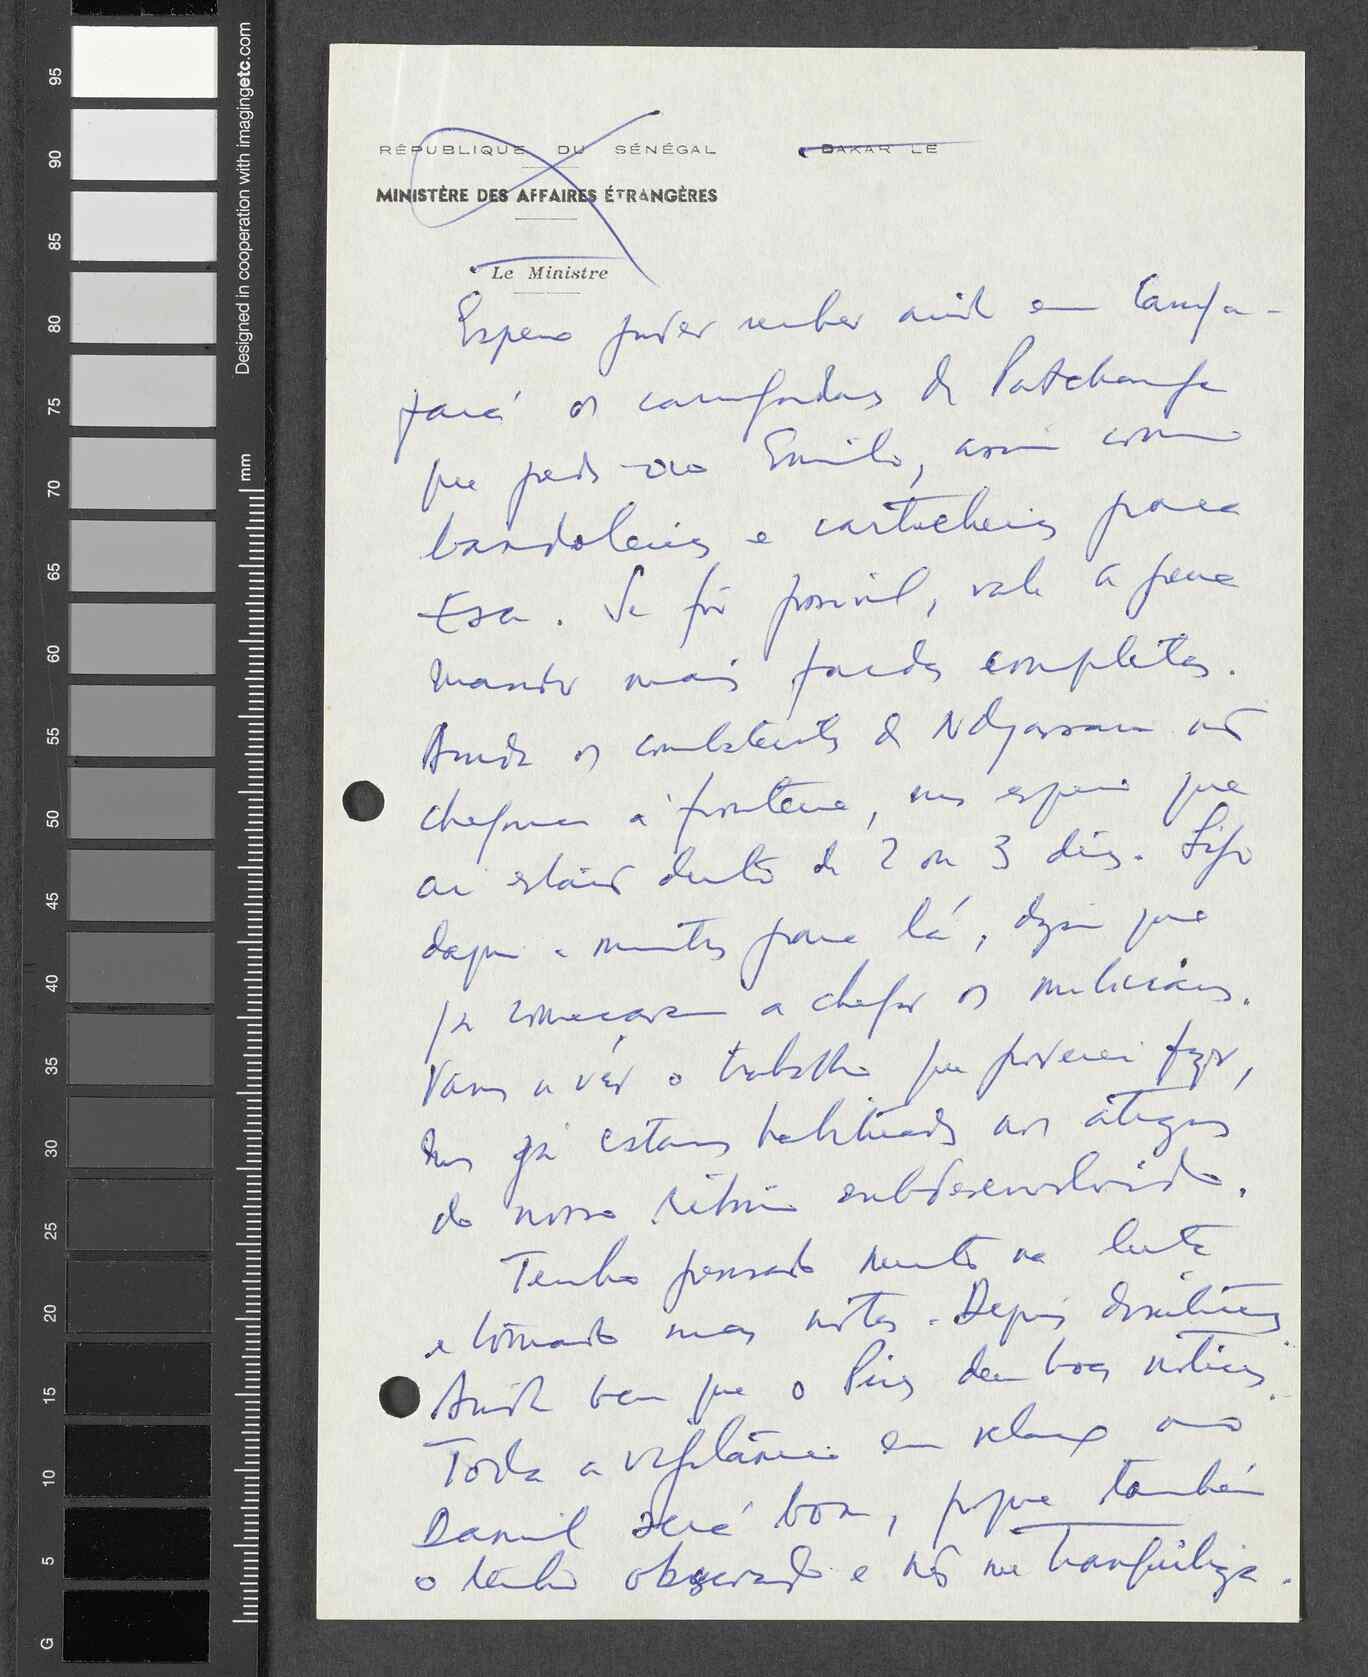 Designed in cooperation with imagingetc.com
mm
95
90
85
80
75
70
65
60
55
50
45
40
35
30
25
20
15
10
5
G
RÉPUBLIQUE DU SÉNÉGAL
DAKAR LE
MINISTÈRE DES AFFAIRES ÉTRANGÈRES
Le Ministre
Espero poder receber ainda em
os camaradas de
que pedi ao Emílio, assim como
bandoleiras e cartucheiras para
essa. Se fôr possível, vale a pena
mandar mais fardas completas.
Ainda os combatentes de não
chegaram à fronteira, mas espero que
aí estarão dentro de 2 ou 3 dias. Sigo
daqui a minutos para lá, dizem que
já começaram a chegar os milicianos.
Vamos a vêr o trabalho que poderei fazer,
mas já estamos habituados aos atrasos
do nosso ritmo subdesenvolvido.
Tenho pensado muito na luta
e tomado umas notas. Depois
Ainda bem que o Pires deu boas notícias.
Toda a vigilância em relação ao
Daniel será boa, porque também
o tenho observado e não me tranquiliza.